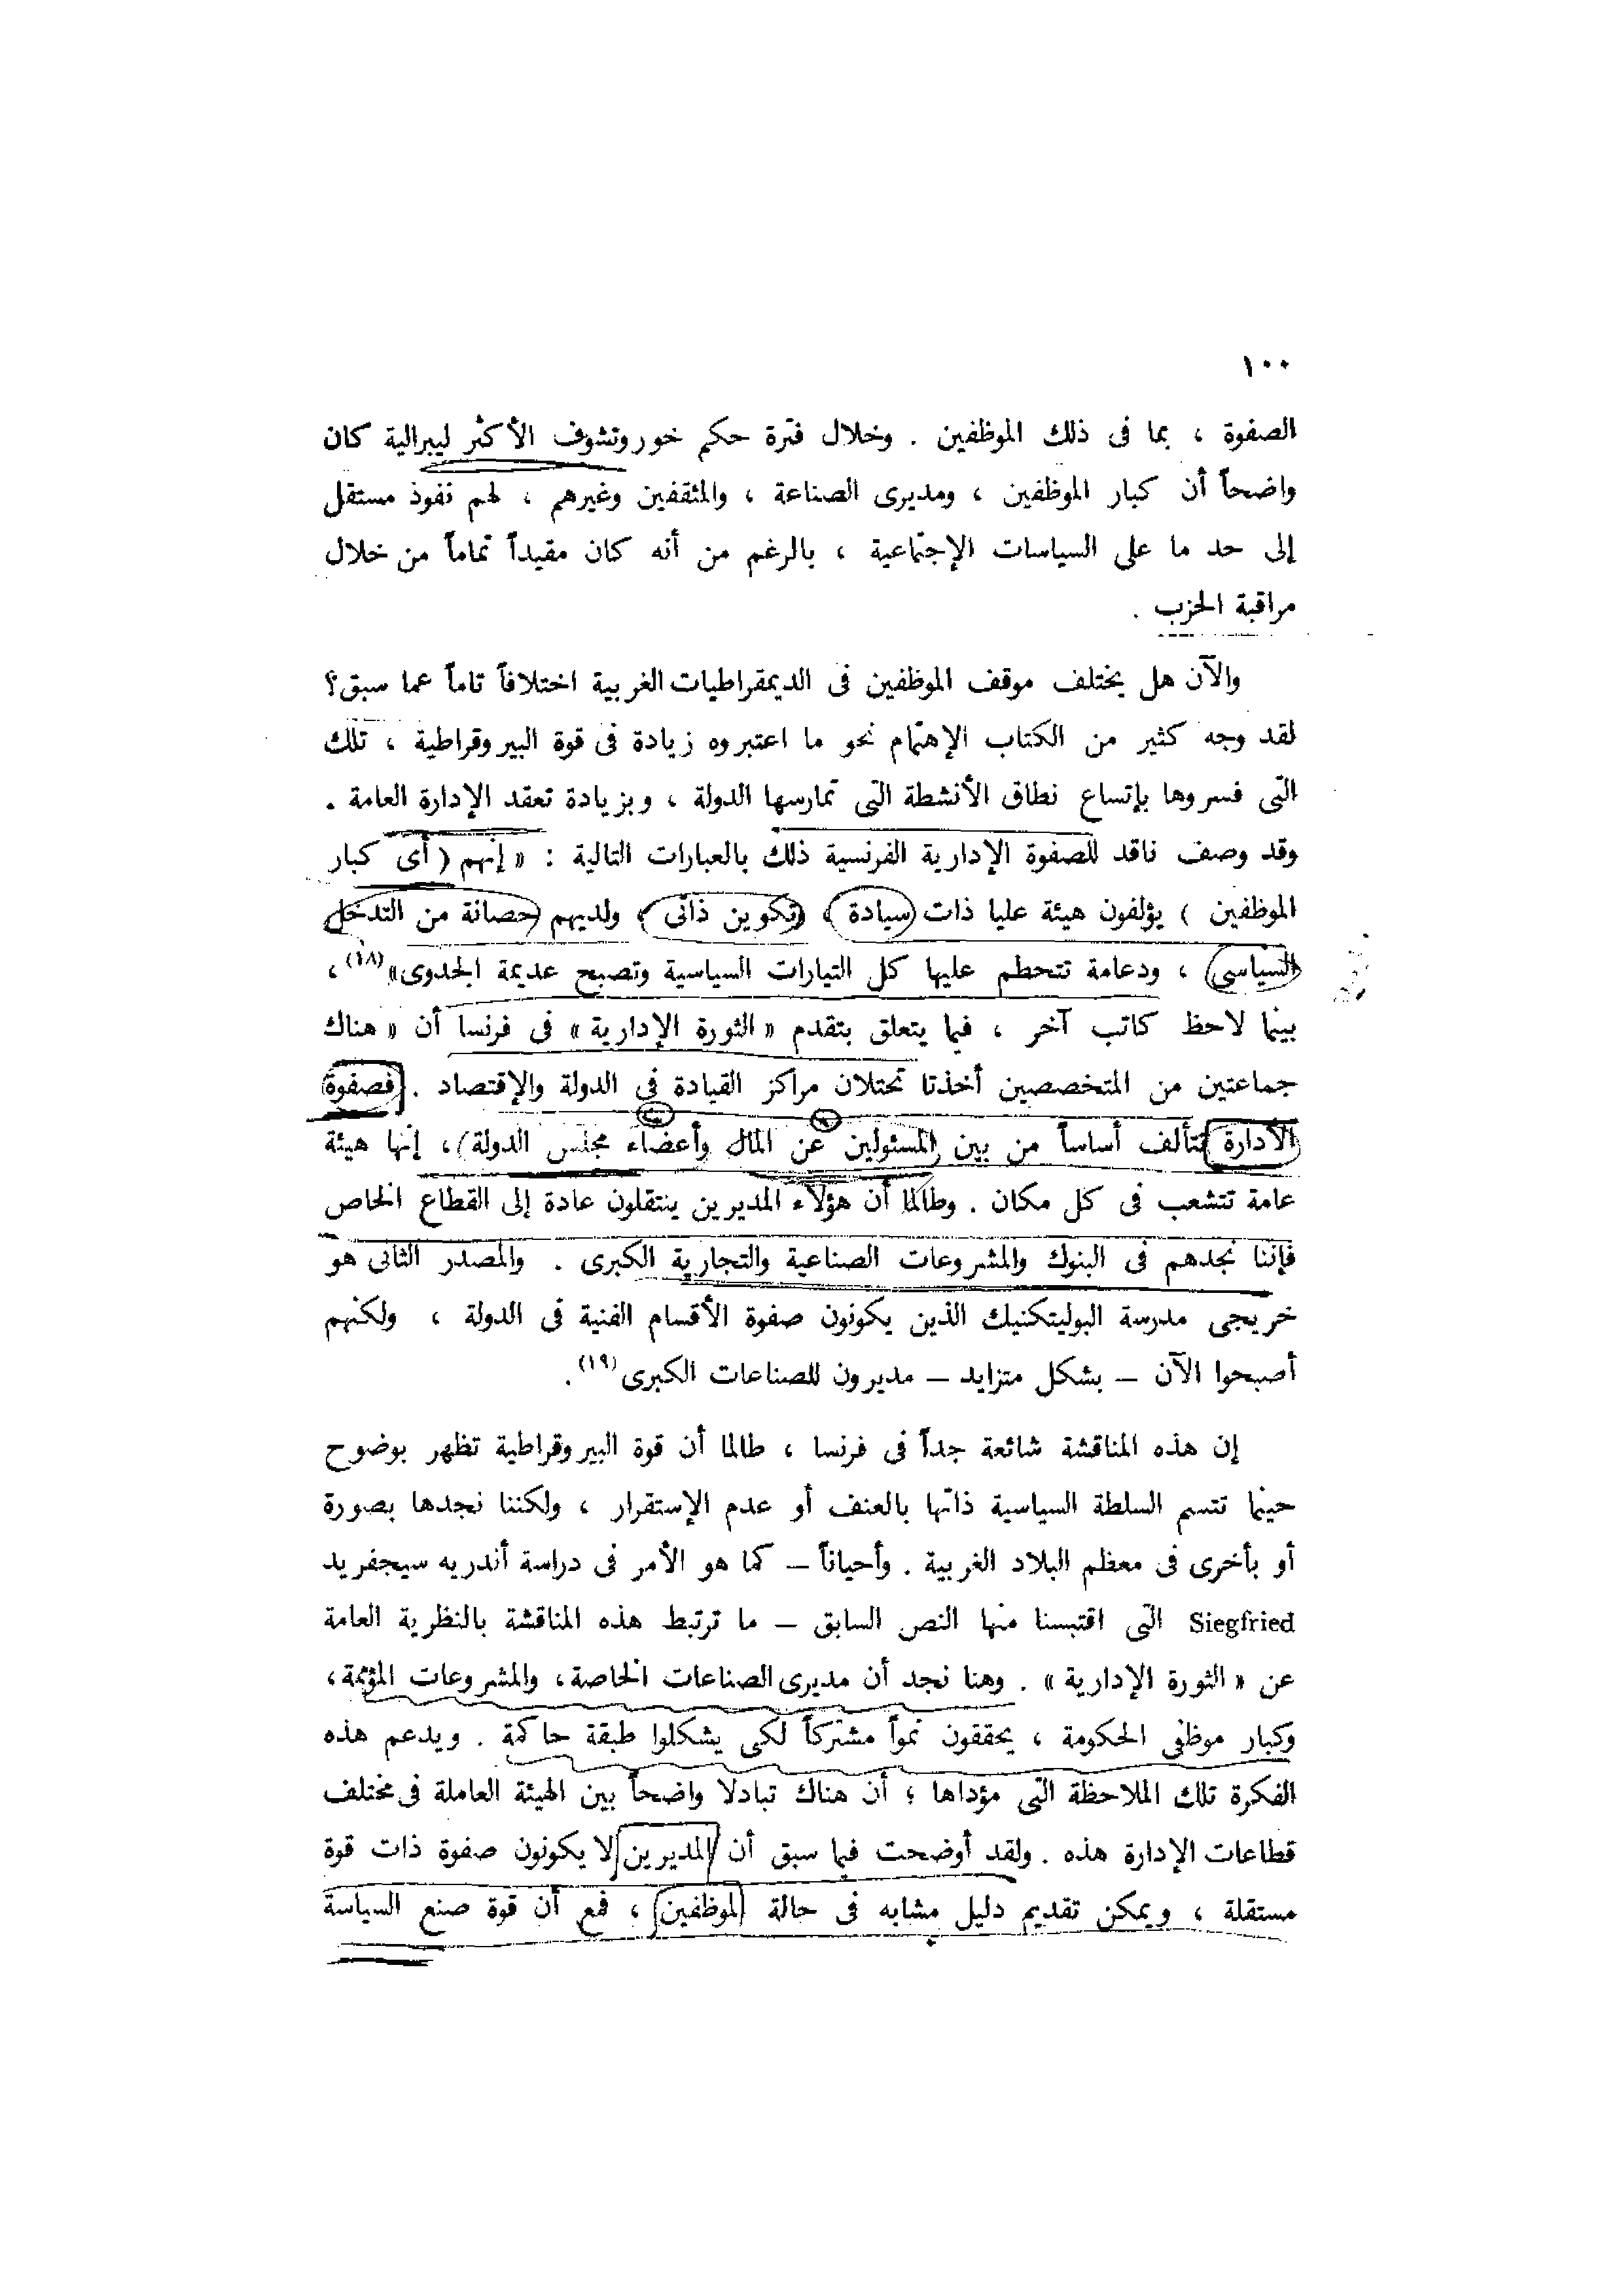 ١٠٠
الصفوة ، بما فى ذلك الموظفين . وخلال فترة حكم خوروتشوف الأكثر ليبرالية كان
واضحاً أن كبار الموظفين ، ومديرى الصناعة ، والمثقفين وغيرهم ، لهم نفوذ مستقل
إلى حد ما على السياسات الإجتماعية ، بالرغم من أنه كان مقيداً تماماً من خلال
مراقبة الحزب .
والآن هل يختلف موقف الموظفين فى الديمقراطيات الغربية اختلافاً تاماً عما سبق؟
لقد وجه كثير من الكتاب الإهتمام نحو ما اعتبروه زيادة فى قوة البيروقراطية ، تلك
التى فسروها بإتساع نطاق الأنشطة التى تمارسها الدولة ، وبزيادة تعقد الإدارة العامة .
وقد وصف ناقد للصفوة الإدارية الفرنسية ذلك بالعبارات التالية : « إنهم ( أى كبار
الموظفين ) يؤلفون هيئة عليا ذات (سيادة) ، (تكوين ذاتى) ولديهم (حصانة من التدخل
السياسى) ، ودعامة تتحطم عليها كل التيارات السياسية وتصبح عديمة الجدوى»(١٨) ،
بينما لاحظ كاتب آخر ، فيما يتعلق بتقدم « الثورة الإدارية » فى فرنسا أن « هناك
جماعتين من المتخصصين أخذتا تحتلان مراكز القيادة فى الدولة والإقتصاد . فصفوة
الأدارة تتألف أساساً من بين (المسئولين عن المال وأعضاء مجلس الدولة)، إنها هيئة
عامة تتشعب فى كل مكان . وطالما أن هؤلاء المديرين ينتقلون عادة إلى القطاع الخاص
فإننا نجدهم فى البنوك والمشروعات الصناعية والتجارية الكبرى . والمصدر الثانى هو
خريجى مدرسة البوليتكنيك الذين يكونون صفوة الأقسام الفنية فى الدولة ، ولكنهم
أصبحوا الآن – بشكل متزايد – مديرون للصناعات الكبرى(١٩) .
إن هذه المناقشة شائعة جداً فى فرنسا ، طالما أن قوة البيروقراطية تظهر بوضوح
حينما تتسم السلطة السياسية ذاتها بالعنف أو عدم الإستقرار ، ولكننا نجدها بصورة
أو بأخرى فى معظم البلاد الغربية . وأحياناً – كما هو الأمر فى دراسة أندريه سيجفريد
Siegfried التى اقتبسنا منها النص السابق – ما ترتبط هذه المناقشة بالنظرية العامة
عن « الثورة الإدارية » . وهنا نجد أن مديرى الصناعات الخاصة، والمشروعات المؤممة،
وكبار موظفى الحكومة ، يحققون نمواً مشتركاً لكى يشكلوا طبقة حاكمة . ويدعم هذه
الفكرة تلك الملاحظة التى مؤداها ؛ أن هناك تبادلا واضحاً بين الهيئة العاملة فى مختلف
قطاعات الإدارة هذه . ولقد أوضحت فيما سبق أن المديرين لا يكونون صفوة ذات قوة
مستقلة ، ويمكن تقديم دليل مشابه فى حالة الموظفين ، فمع أن قوة صنع السياسة